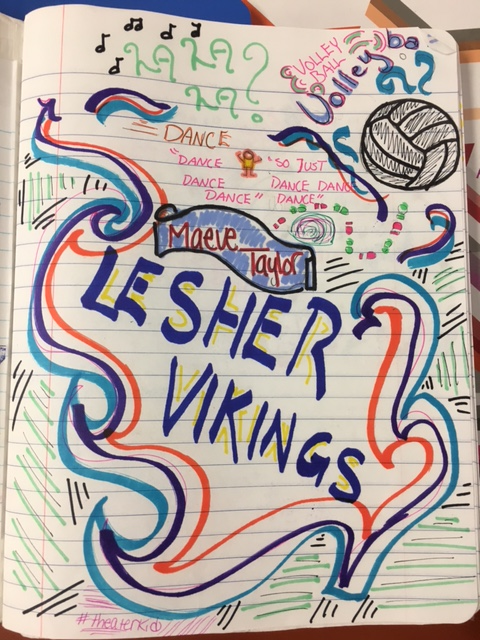 LA LA?
LA?
VOLLEY
BALL
Volleyba
DANCE
"DANCE "SO JUST
DANCE DANCE DANCE
DANCE" DANCE"
Maeve
Taylor
LESHER
VIKINGS
#theaterkid